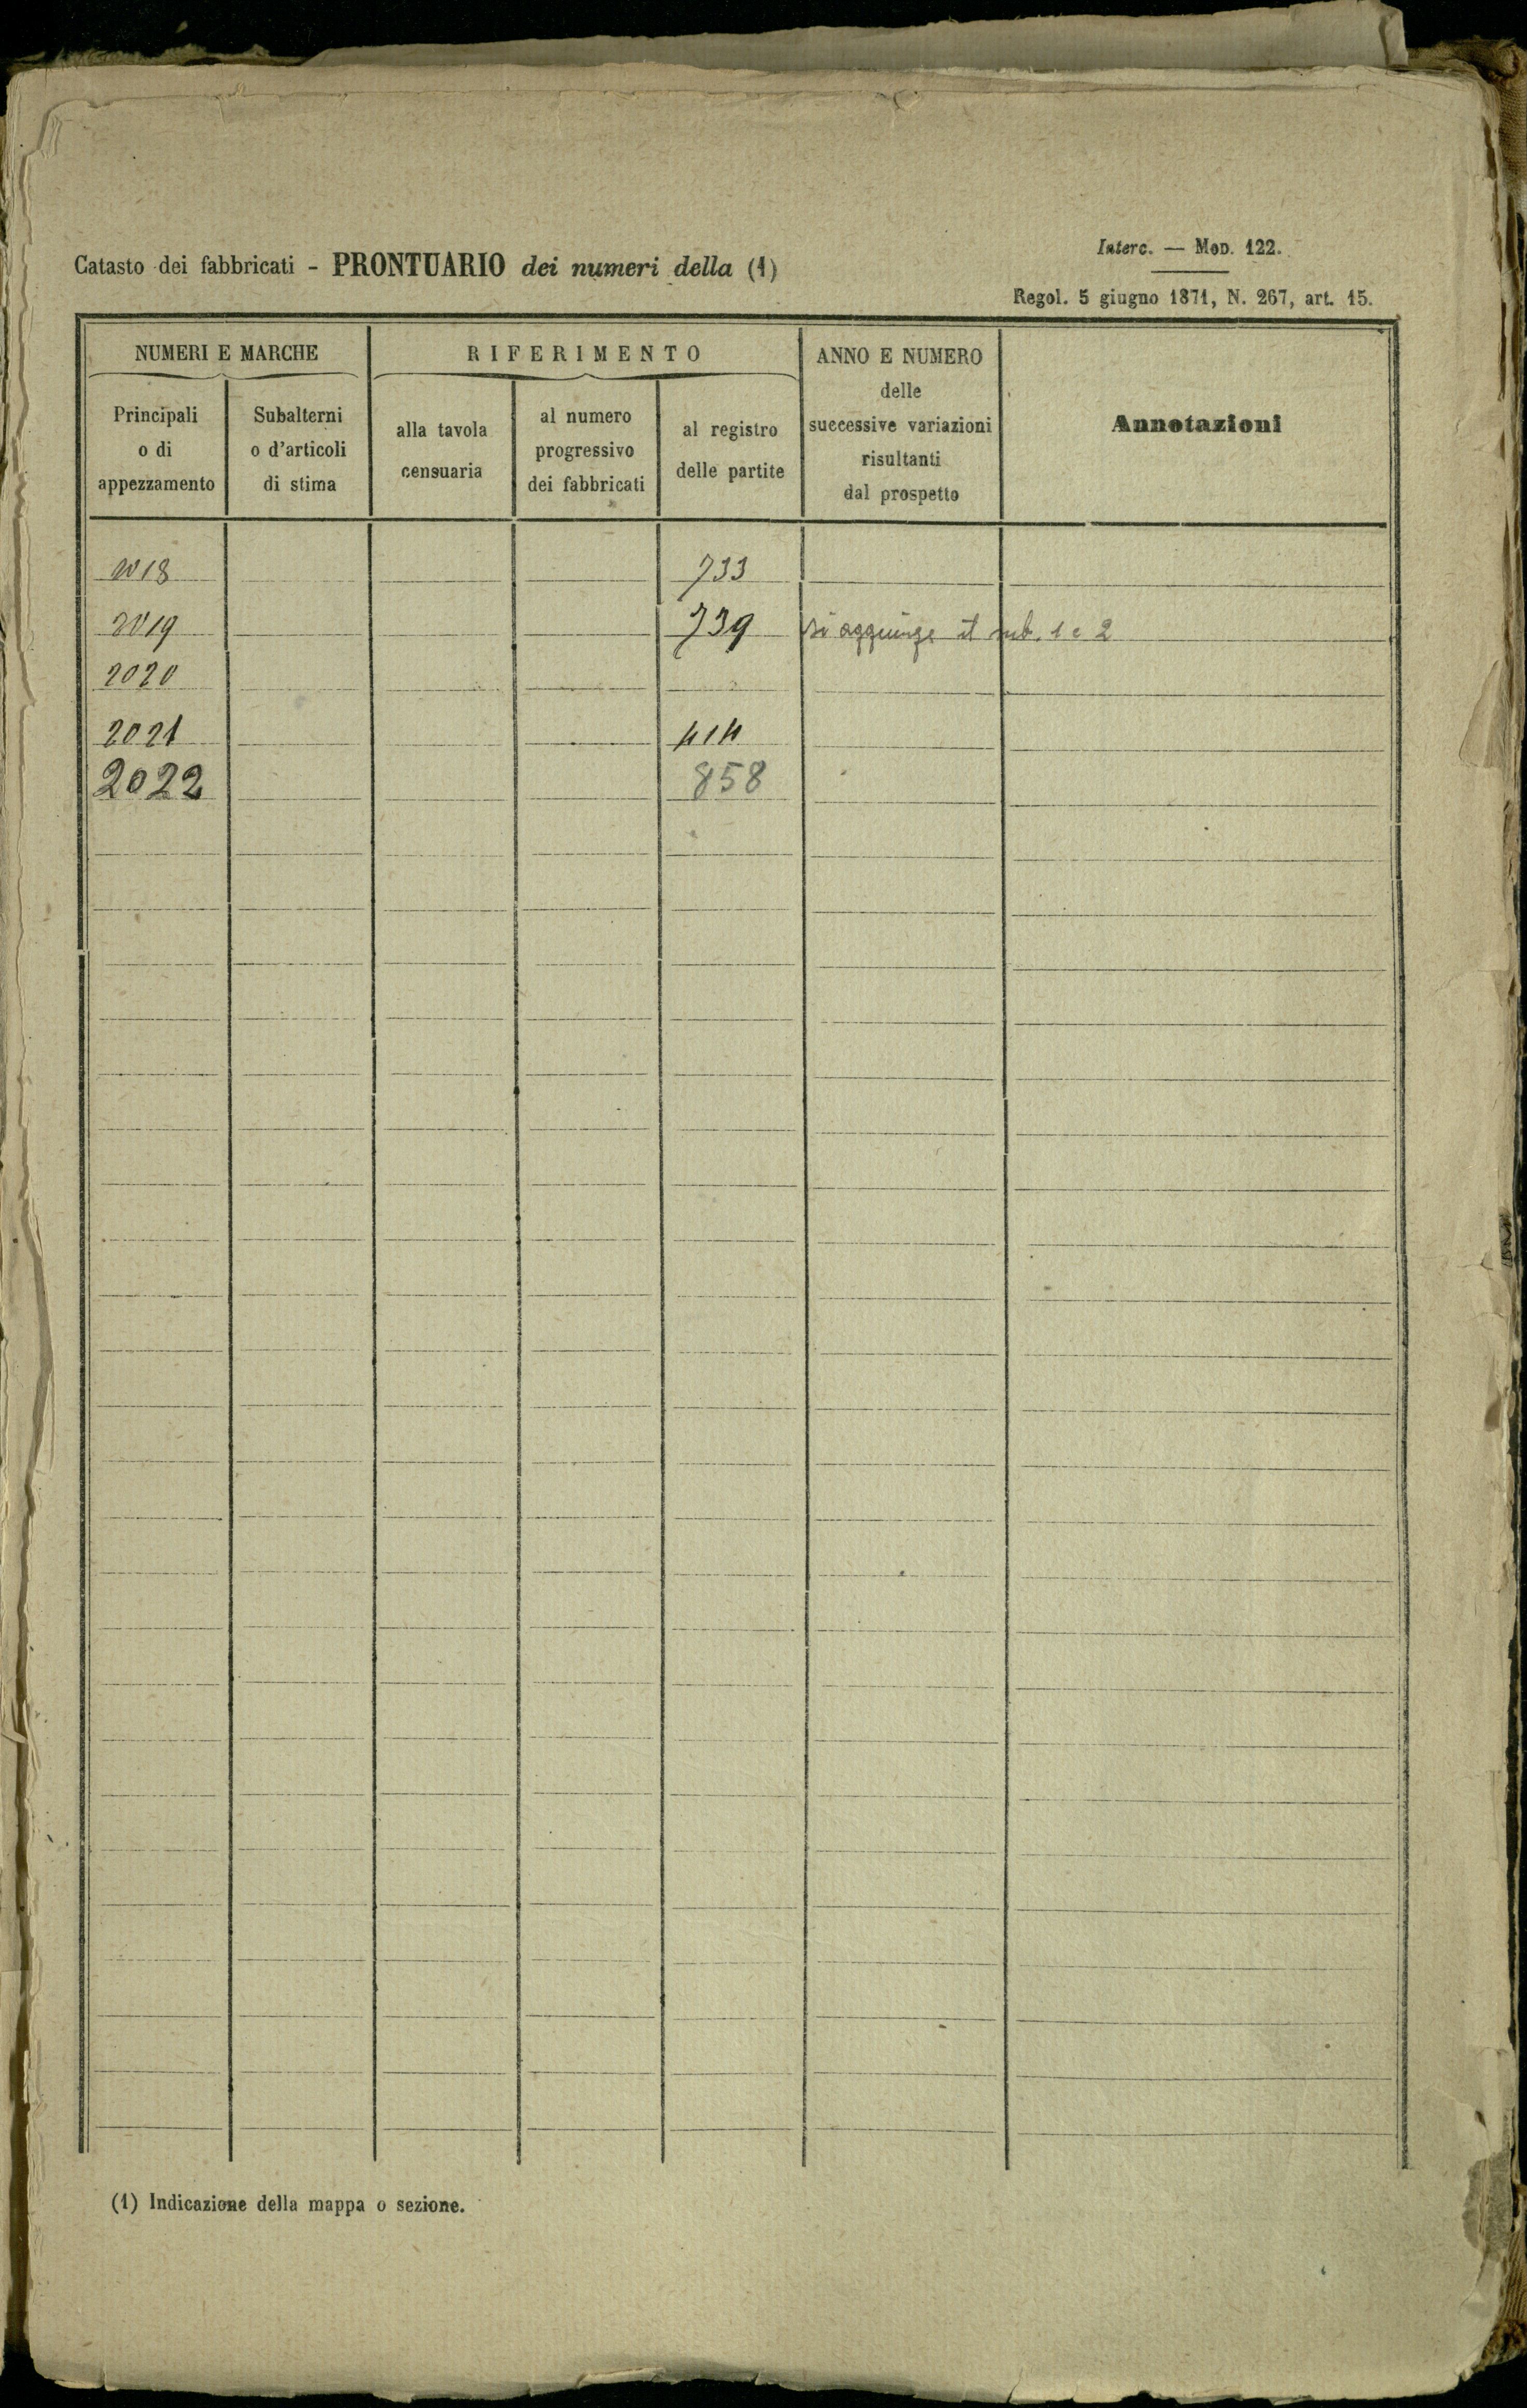 Catasto dei fabbricati - PRONTUARIO dei numeri della (1)
Interc. — Mod. 122.
Regol. 5 giugno 1871, N. 267, art. 15.
NUMERI E MARCHE
RIFERIMENTO
ANNO E NUMERO
delle
successive variazioni
risultanti
dal prospetto
Annotazioni
Principali
o di
appezzamento
Subalterni
o d'articoli
di stima
alla tavola
censuaria
al numero
progressivo
dei fabbricati
al registro
delle partite
2018 733
2019 739 si aggiunge il sub. 1 e 2
2020
2021 414
2022 858
(1) Indicazione della mappa o sezione.